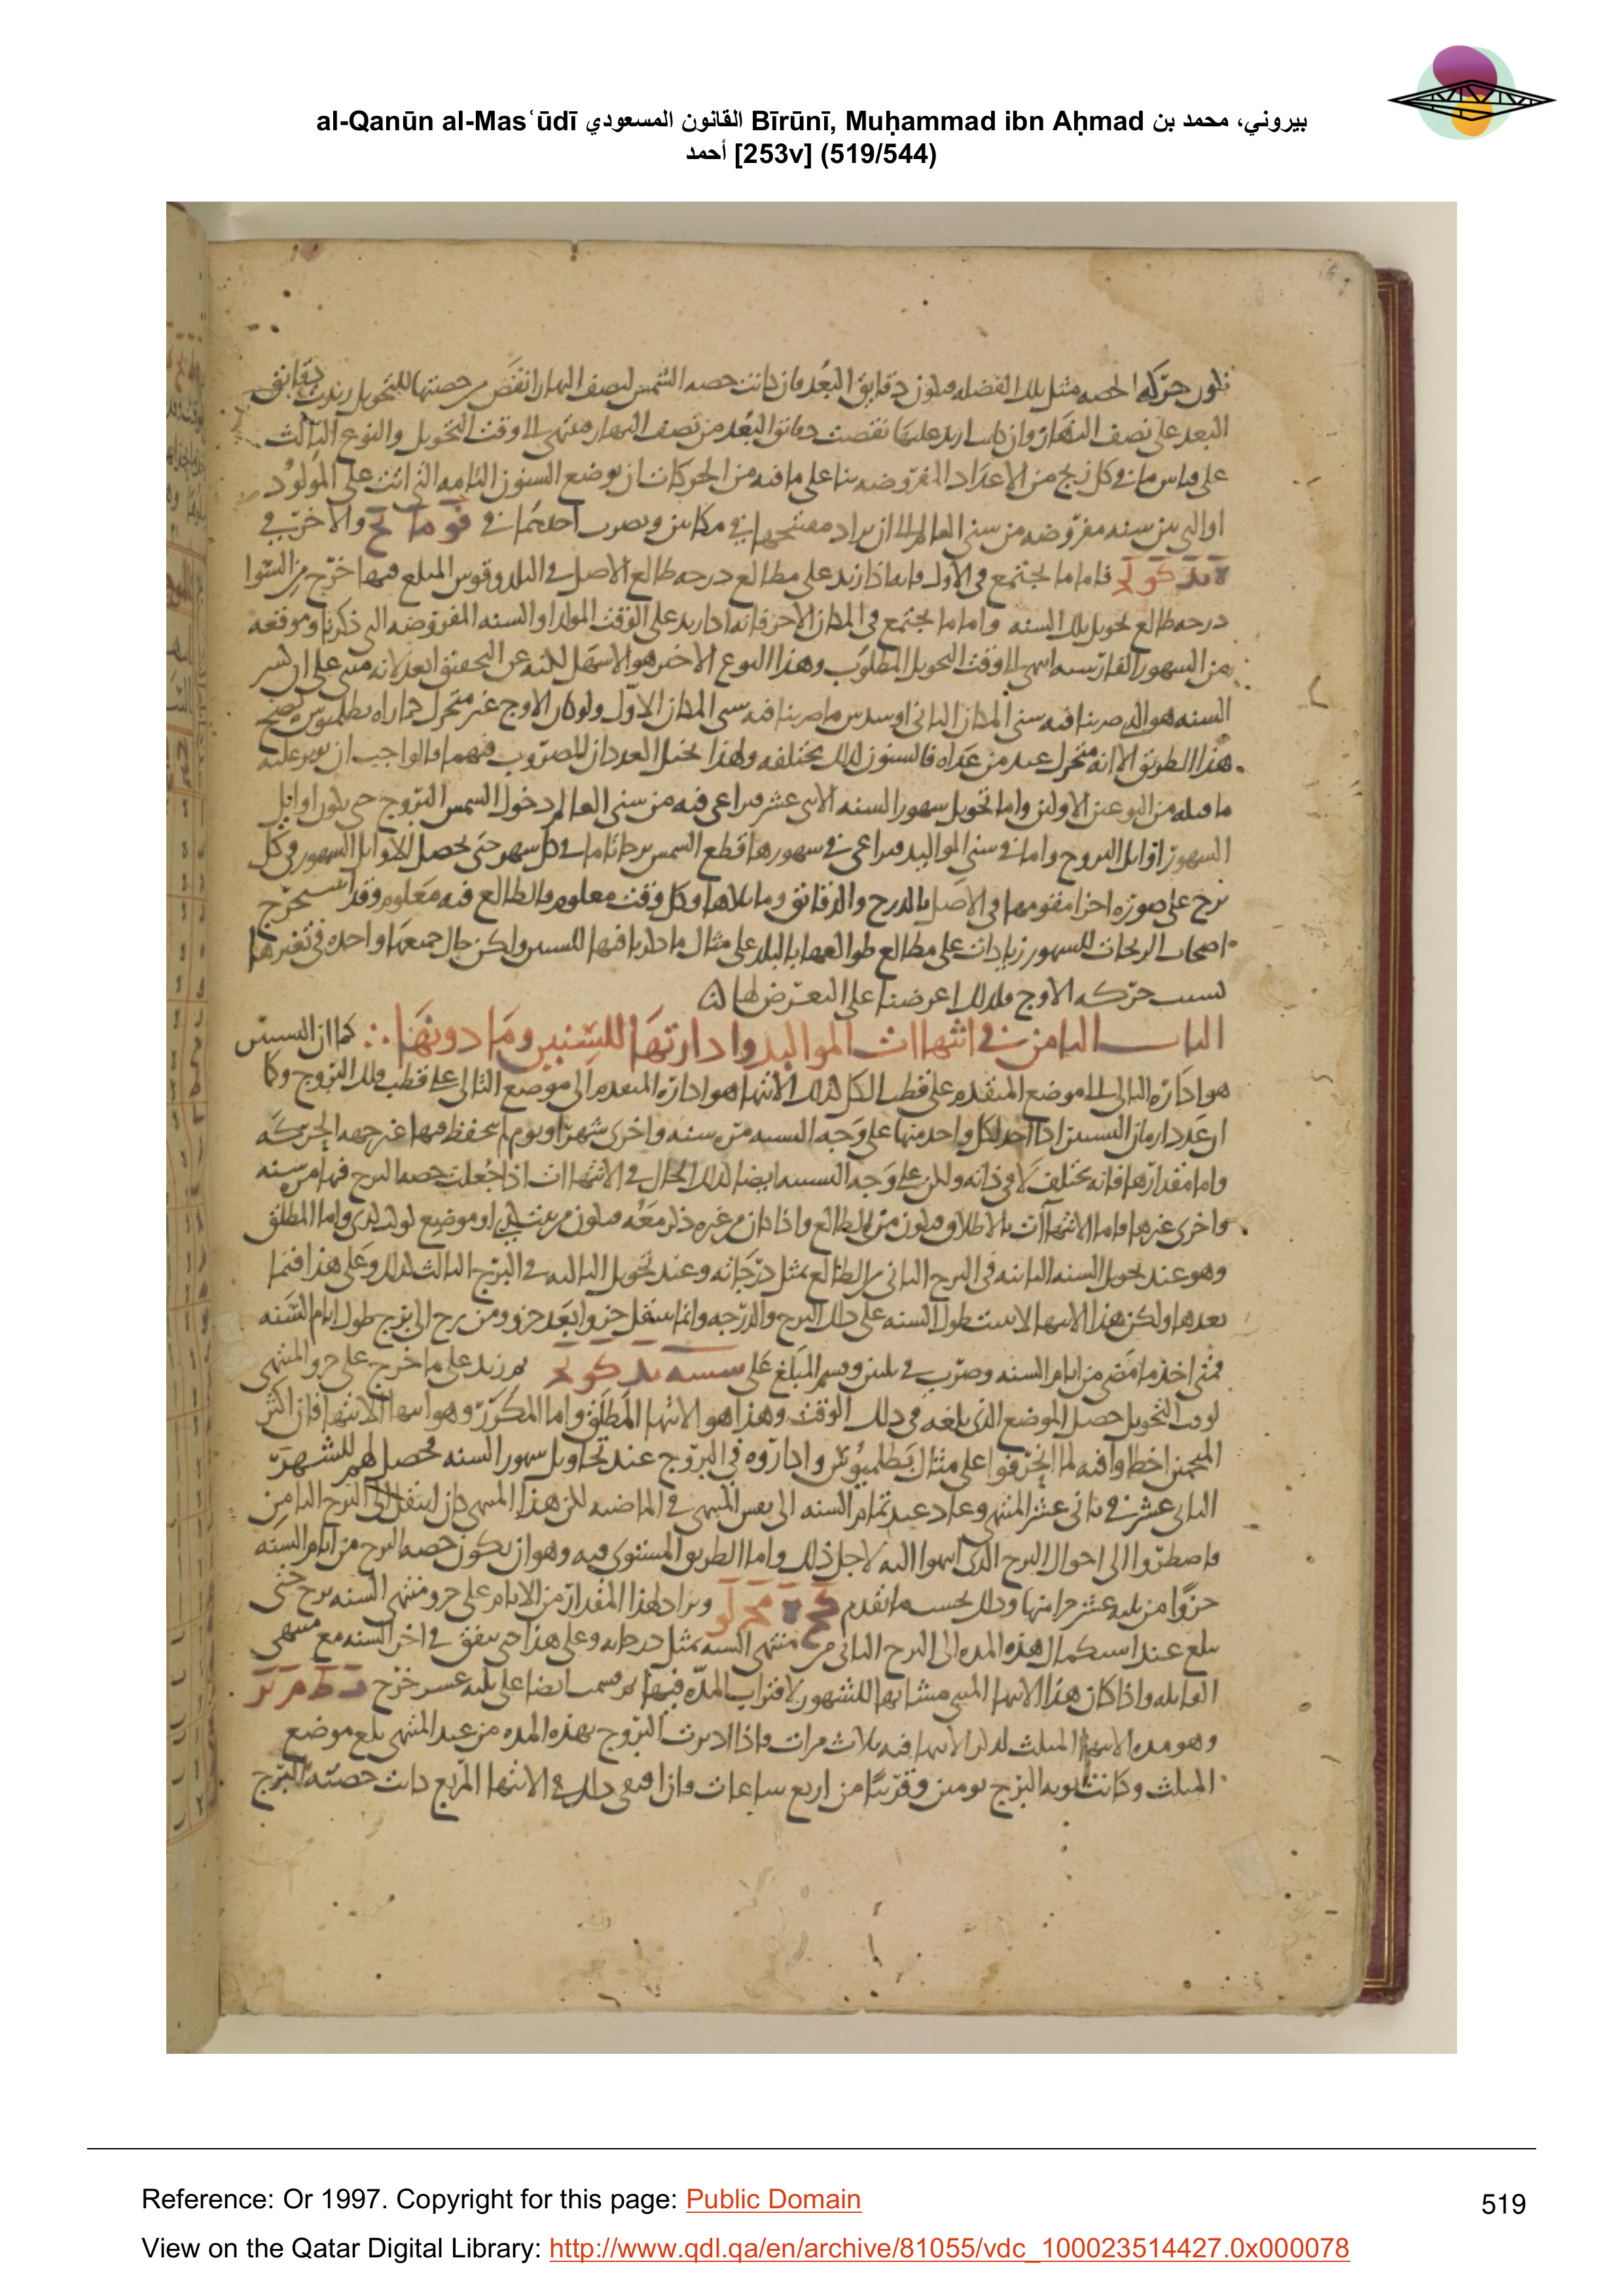 al-Qanūn al-Masʿūdī القانون المسعودي Bīrūnī, Muḥammad ibn Aḥmad بيروني، محمد بن
أحمد [253v] (519/544)
حركه الحصه مثل تلك الفضله دقايق البعد فان كانت حصه الشمس لنصف النهار انقص من حصتها للتحويل زيدت دقايق
البعد على نصف النهار وان كانت ازيد عليها نقصت دقايق البعد من نصف النهار الى وقت التحويل والنوع الثالث
على قياس ما في كل زيج من الاعداد المفروضه بنا على ما فيه من الحركات ان يوضع السنون التامه التي اتت على المولود
او التي بين سنه مفروضه من سني العالم الى ان يراد في مكانين ويضرب احدهما في والاخر في
فاما ما يجتمع في الاول فانه اذا زيد على مطالع درجه طالع الاصل في البلد وقوس المبلغ فيها خرج من السوا
درجه طالع تحويل تلك السنه واما ما يجتمع في المكان الاخر فانه اذا زيد على الوقت المولد او السنه المفروضه التي ذكرنا وموقعه
من الشهور الفارسيه انتهى الى وقت التحويل المطلوب وهذا النوع الاخير هو الاسهل لكنه عن التحقيق ابعد لانه مبنى على ان كسر
السنه هو الذي ضربنا فيه سني المكان الثاني او سدس ما ضربنا فيه سني المكان الاول ولو كان الاوج غير متحرك كما راه بطلميوس لصح
هذا الطريق الا انه متحرك عند من عداه فالسنون لذلك مختلفه ولهذا يختل العددان المضروب فيهما فالواجب ان
ما قبله من النوعين الاولين واما تحويل شهور السنه الاثنى عشر فيراعى فيه من سني العالم دخول الشمس البروج حتى يكون اوايل
الشهور اوايل البروج واما في سني المواليد فيراعى في شهورها قطع الشمس برجا تاما في كل شهر حتى يحصل لاوايل الشهور في كل
برج على صوره اجزا مقومها في الاصل بالدرج والدقايق وما يتلاها وكل وقت معلوم فالطالع فيه معلوم وقد استخرج
اصحاب الزيجات للشهور زيادات على مطالع طوالعها بالبلد على مثال ما ذكرنا فيها للسنين ولكن حال جميعها واحده في تغيرها
بسبب حركه الاوج فلذلك اعرضنا على التعرض لها
الباب الثامن في انتهاات المواليد وادارتها للسنين وما دونها ∴ كما ان التسيير
هو اداره التالي الى الموضع المتقدم على قطب الكل كذلك الانتها هو اداره المتقدم الى موضع التالي على قطب فلك البروج وكما
ان ازمان التسيير اذا اخذ لكل واحد منها على وجه التسيير من سنه واخرى شهرا ويوم لم يتحفظ فيها غير جهه الحركه
واما مقدارها فانه يختلف لا في ذاته ولكن على وجه النسبه ايضا كذلك الحال في الانتهاات اذا جعلت حصه البرج فيها من سنه
واخرى غيرها فاما الانتهاات بالاطلاق فيكون من الطالع واذا كان من غيره ذكر معه فيكون من او موضع كوكب كذى واما المطلق
وهو عند تحويل السنه الثانيه في البرج الثاني من الطالع بمثل درجاته وعند تحويل الثالثه في البرج الثالث كذلك وعلى هذا فيما
بعدها ولكن هذا الانتها لا يثبت طول السنه على ذلك البرج والدرجه وانما ينتقل جزوا بعد جزو ومن برج الى برج طول ايام السنه
فمتى اخذ ما مضى من ايام السنه وضرب في ثلثين وقسم المبلغ على ثم زيد على ما خرج على جزو المنتهى
لوقت التحويل حصل الموضع الذي بلغه في ذلك الوقت وهذا هو الانتها المطلق واما المكرر وهو انتها الانتها فان اكثر
المنجمين اخطاوا فيه لما انحرفوا على مثال بطلميوس واداروه في البروج عند تحاويل شهور السنه فحصل لهم للشهر
الثاني عشر في ثاني عشر المنتهى وعاد عند تمام السنه الى نفس المنتهى في الماضيه لكن هذا المنتهى كان انتقل الى البرج الثامن
فاضطروا الى احوال البرج الذي انتهوا اليه لاجل ذلك واما الطريق المستوى فيه وهو ان يكون حصه البرج من ايام السنه
جزوا من ثلثه عشر جزا منها وذلك بحسب ما تقدم ويزاد لهذا المقدار من الايام على جزو منتهى السنه برج حتى
بلغ عند استكمال هذه المده الى البرج الثاني من منتهى السنه بمثل درجاته وعلى هذا حتى يتفق في اخر السنه مع منتهى
القابله واذا كان هذا الانتها المثنى مشابها للشهور لاقتراب المده فيها ثم قسمت ايضا على ثلثه عشر خرج
وهو مده الانتها المثلث لتكرر الانتها فيه ثلاث مرات واذا اديرت البروج بهذه المده من عند المنتهى بلغ موضع
المثلث وكانت نوبه البرج يومين وقريبا من اربع ساعات وان في ذلك في الانتها المربع كانت حصته البرج
Reference: Or 1997. Copyright for this page: Public Domain
519
View on the Qatar Digital Library: http://www.qdl.qa/en/archive/81055/vdc_100023514427.0x000078